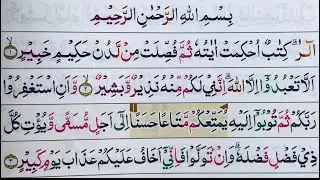 بِسْمِ اللهِ الرَّحْمٰنِ الرَّحِيْمِ
الٓرٰ كِتٰبٌ اُحْكِمَتْ اٰيٰتُهٗ ثُمَّ فُصِّلَتْ مِنْ لَّدُنْ حَكِيْمٍ خَبِيْرٍ ۝۱
اَلَّا تَعْبُدُوْۤا اِلَّا اللهَ اِنَّنِيْ لَكُمْ مِّنْهُ نَذِيْرٌ وَّبَشِيْرٌ ۝۲ وَّاَنِ اسْتَغْفِرُوْا
رَبَّكُمْ ثُمَّ تُوْبُوْۤا اِلَيْهِ يُمَتِّعْكُمْ مَّتَاعًا حَسَنًا اِلٰۤى اَجَلٍ مُّسَمًّى وَّيُؤْتِ كُلَّ
ذِيْ فَضْلٍ فَضْلَهٗ وَاِنْ تَوَلَّوْا فَاِنِّيْۤ اَخَافُ عَلَيْكُمْ عَذَابَ يَوْمٍ كَبِيْرٍ ۝۳